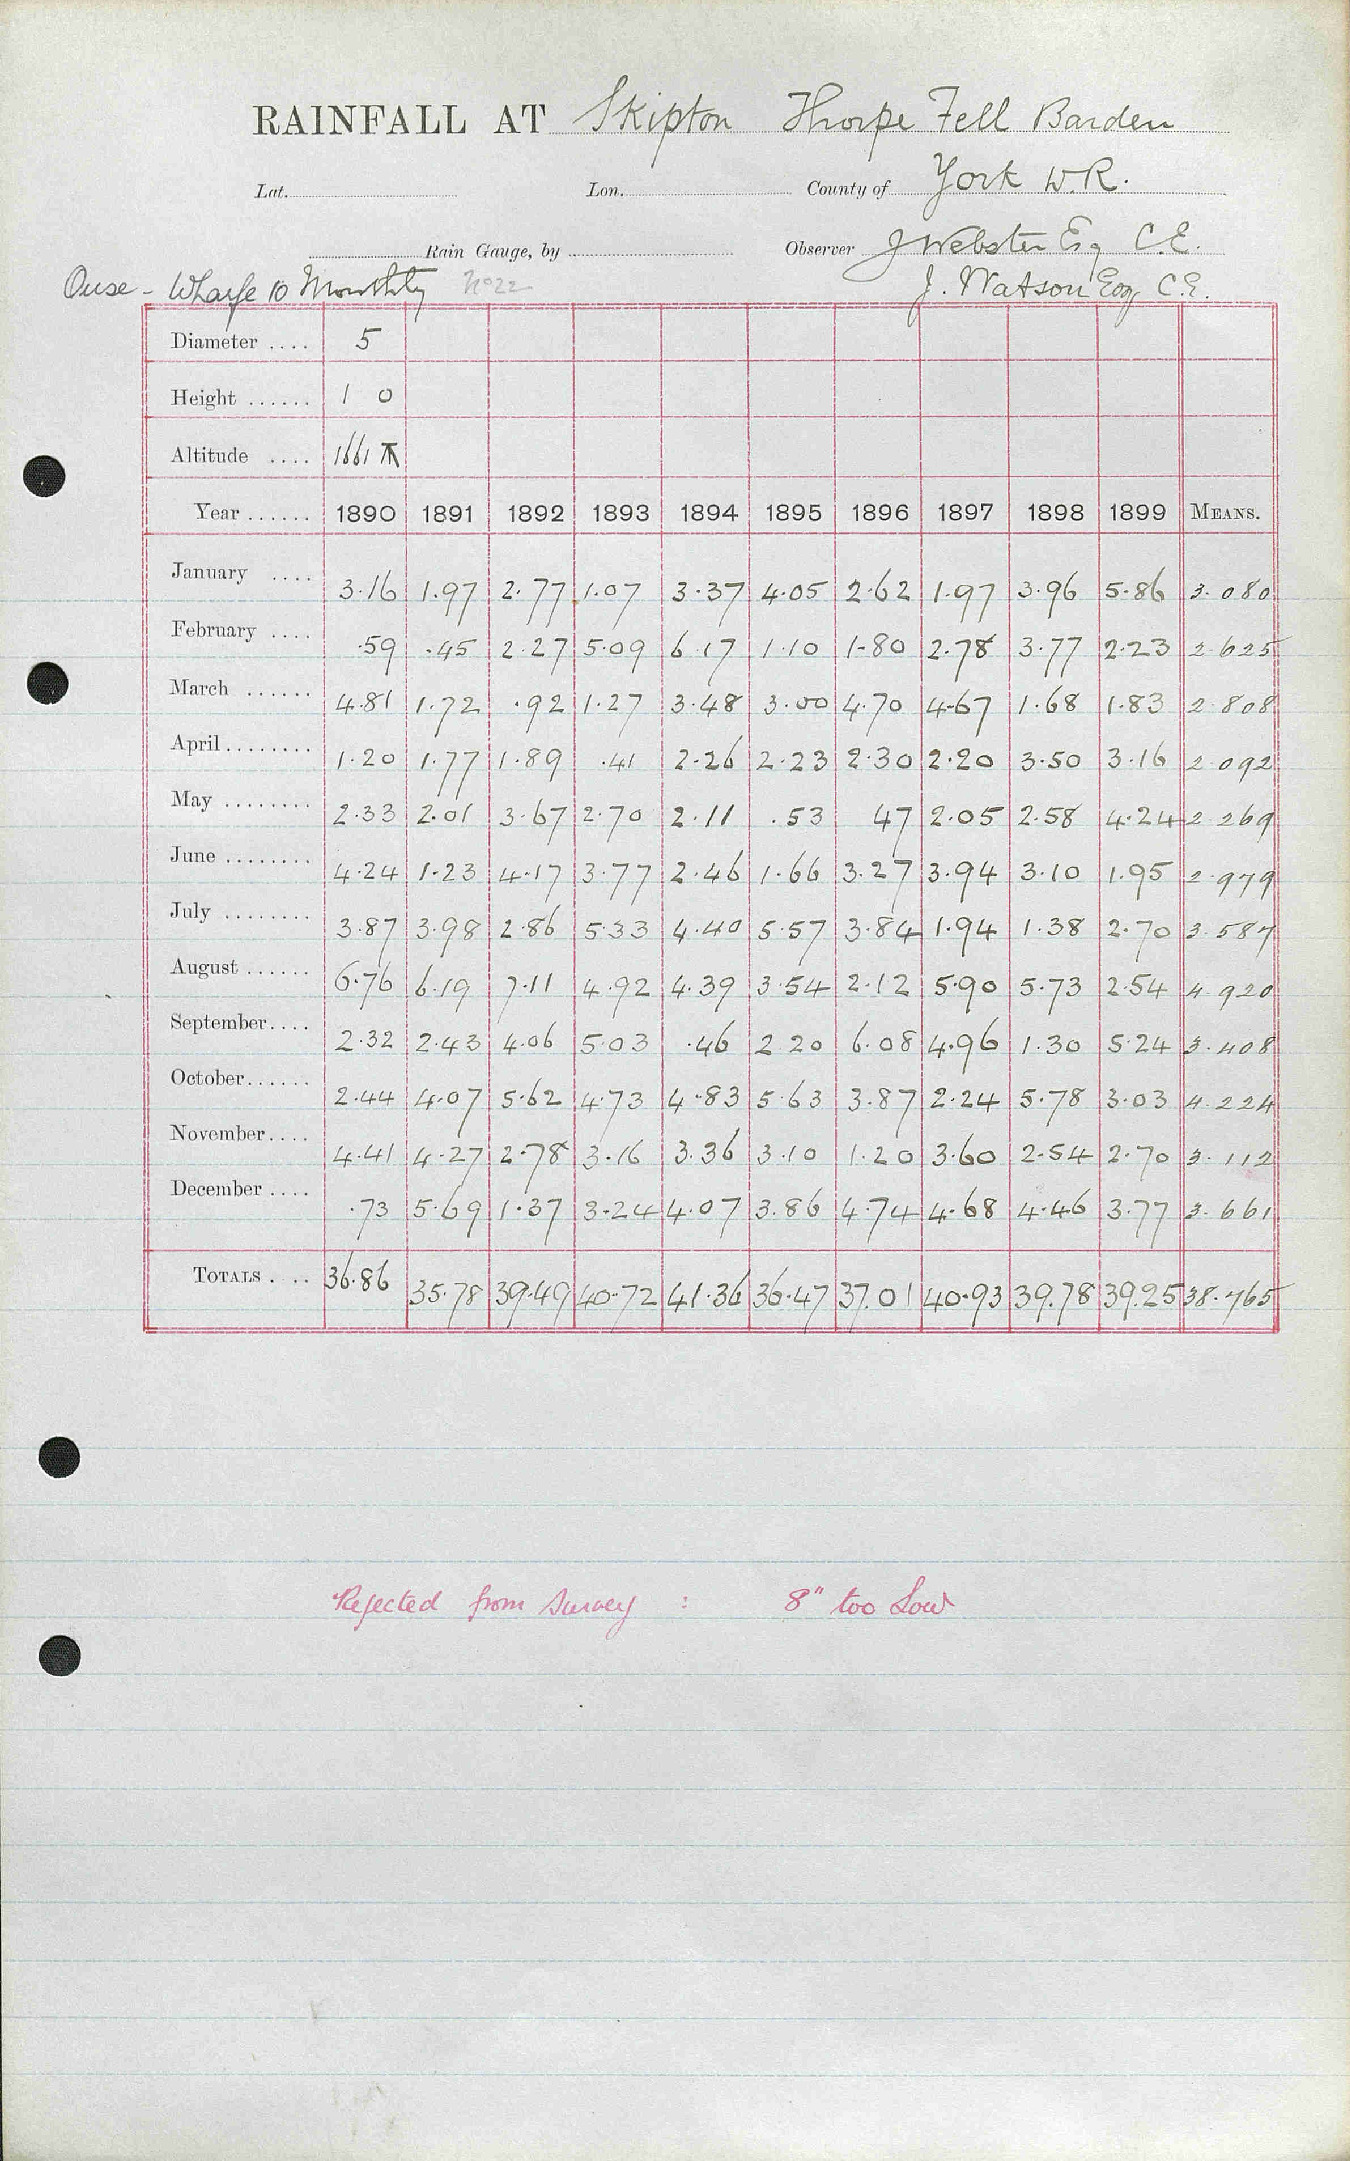 RAINFALL AT Skipton Thorpe Fell Barden
Lat. Lon. County of York W.R.
Rain Gauge, by Observer J Webster Esq C.E.
Ouse - Wharfe 10 Monthly No 22 J. Watson Esq C.E.
Diameter .... 5
Height ...... 1 0
Altitude .... 1661
Year ...... 1890 1891 1892 1893 1894 1895 1896 1897 1898 1899 MEANS.
January .... 3.16 1.97 2.77 1.07 3.37 4.05 2.62 1.97 3.96 5.86 3.080
February .... .59 .45 2.27 5.09 6.17 1.10 1.80 2.78 3.77 2.23 2.625
March ...... 4.81 1.72 .92 1.27 3.48 3.00 4.70 4.67 1.68 1.83 2.808
April ........ 1.20 1.77 1.89 .41 2.26 2.23 2.30 2.20 3.50 3.16 2.092
May ........ 2.33 2.01 3.67 2.70 2.11 .53 47 2.05 2.58 4.24 2.269
June ........ 4.24 1.23 4.17 3.77 2.46 1.66 3.27 3.94 3.10 1.95 2.979
July ........ 3.87 3.98 2.86 5.33 4.40 5.57 3.84 1.94 1.38 2.70 3.587
August ...... 6.76 6.19 7.11 4.92 4.39 3.54 2.12 5.90 5.73 2.54 4.920
September .... 2.32 2.43 4.06 5.03 .46 2.20 6.08 4.96 1.30 5.24 3.408
October ...... 2.44 4.07 5.62 4.73 4.83 5.63 3.87 2.24 5.78 3.03 4.224
November .... 4.41 4.27 2.78 3.16 3.36 3.10 1.20 3.60 2.54 2.70 3.112
December .... .73 5.69 1.37 3.24 4.07 3.86 4.74 4.68 4.46 3.77 3.661
TOTALS . ... 36.86 35.78 39.49 40.72 41.36 36.47 37.01 40.93 39.78 39.25 38.765
Rejected from Survey : 8" too Low